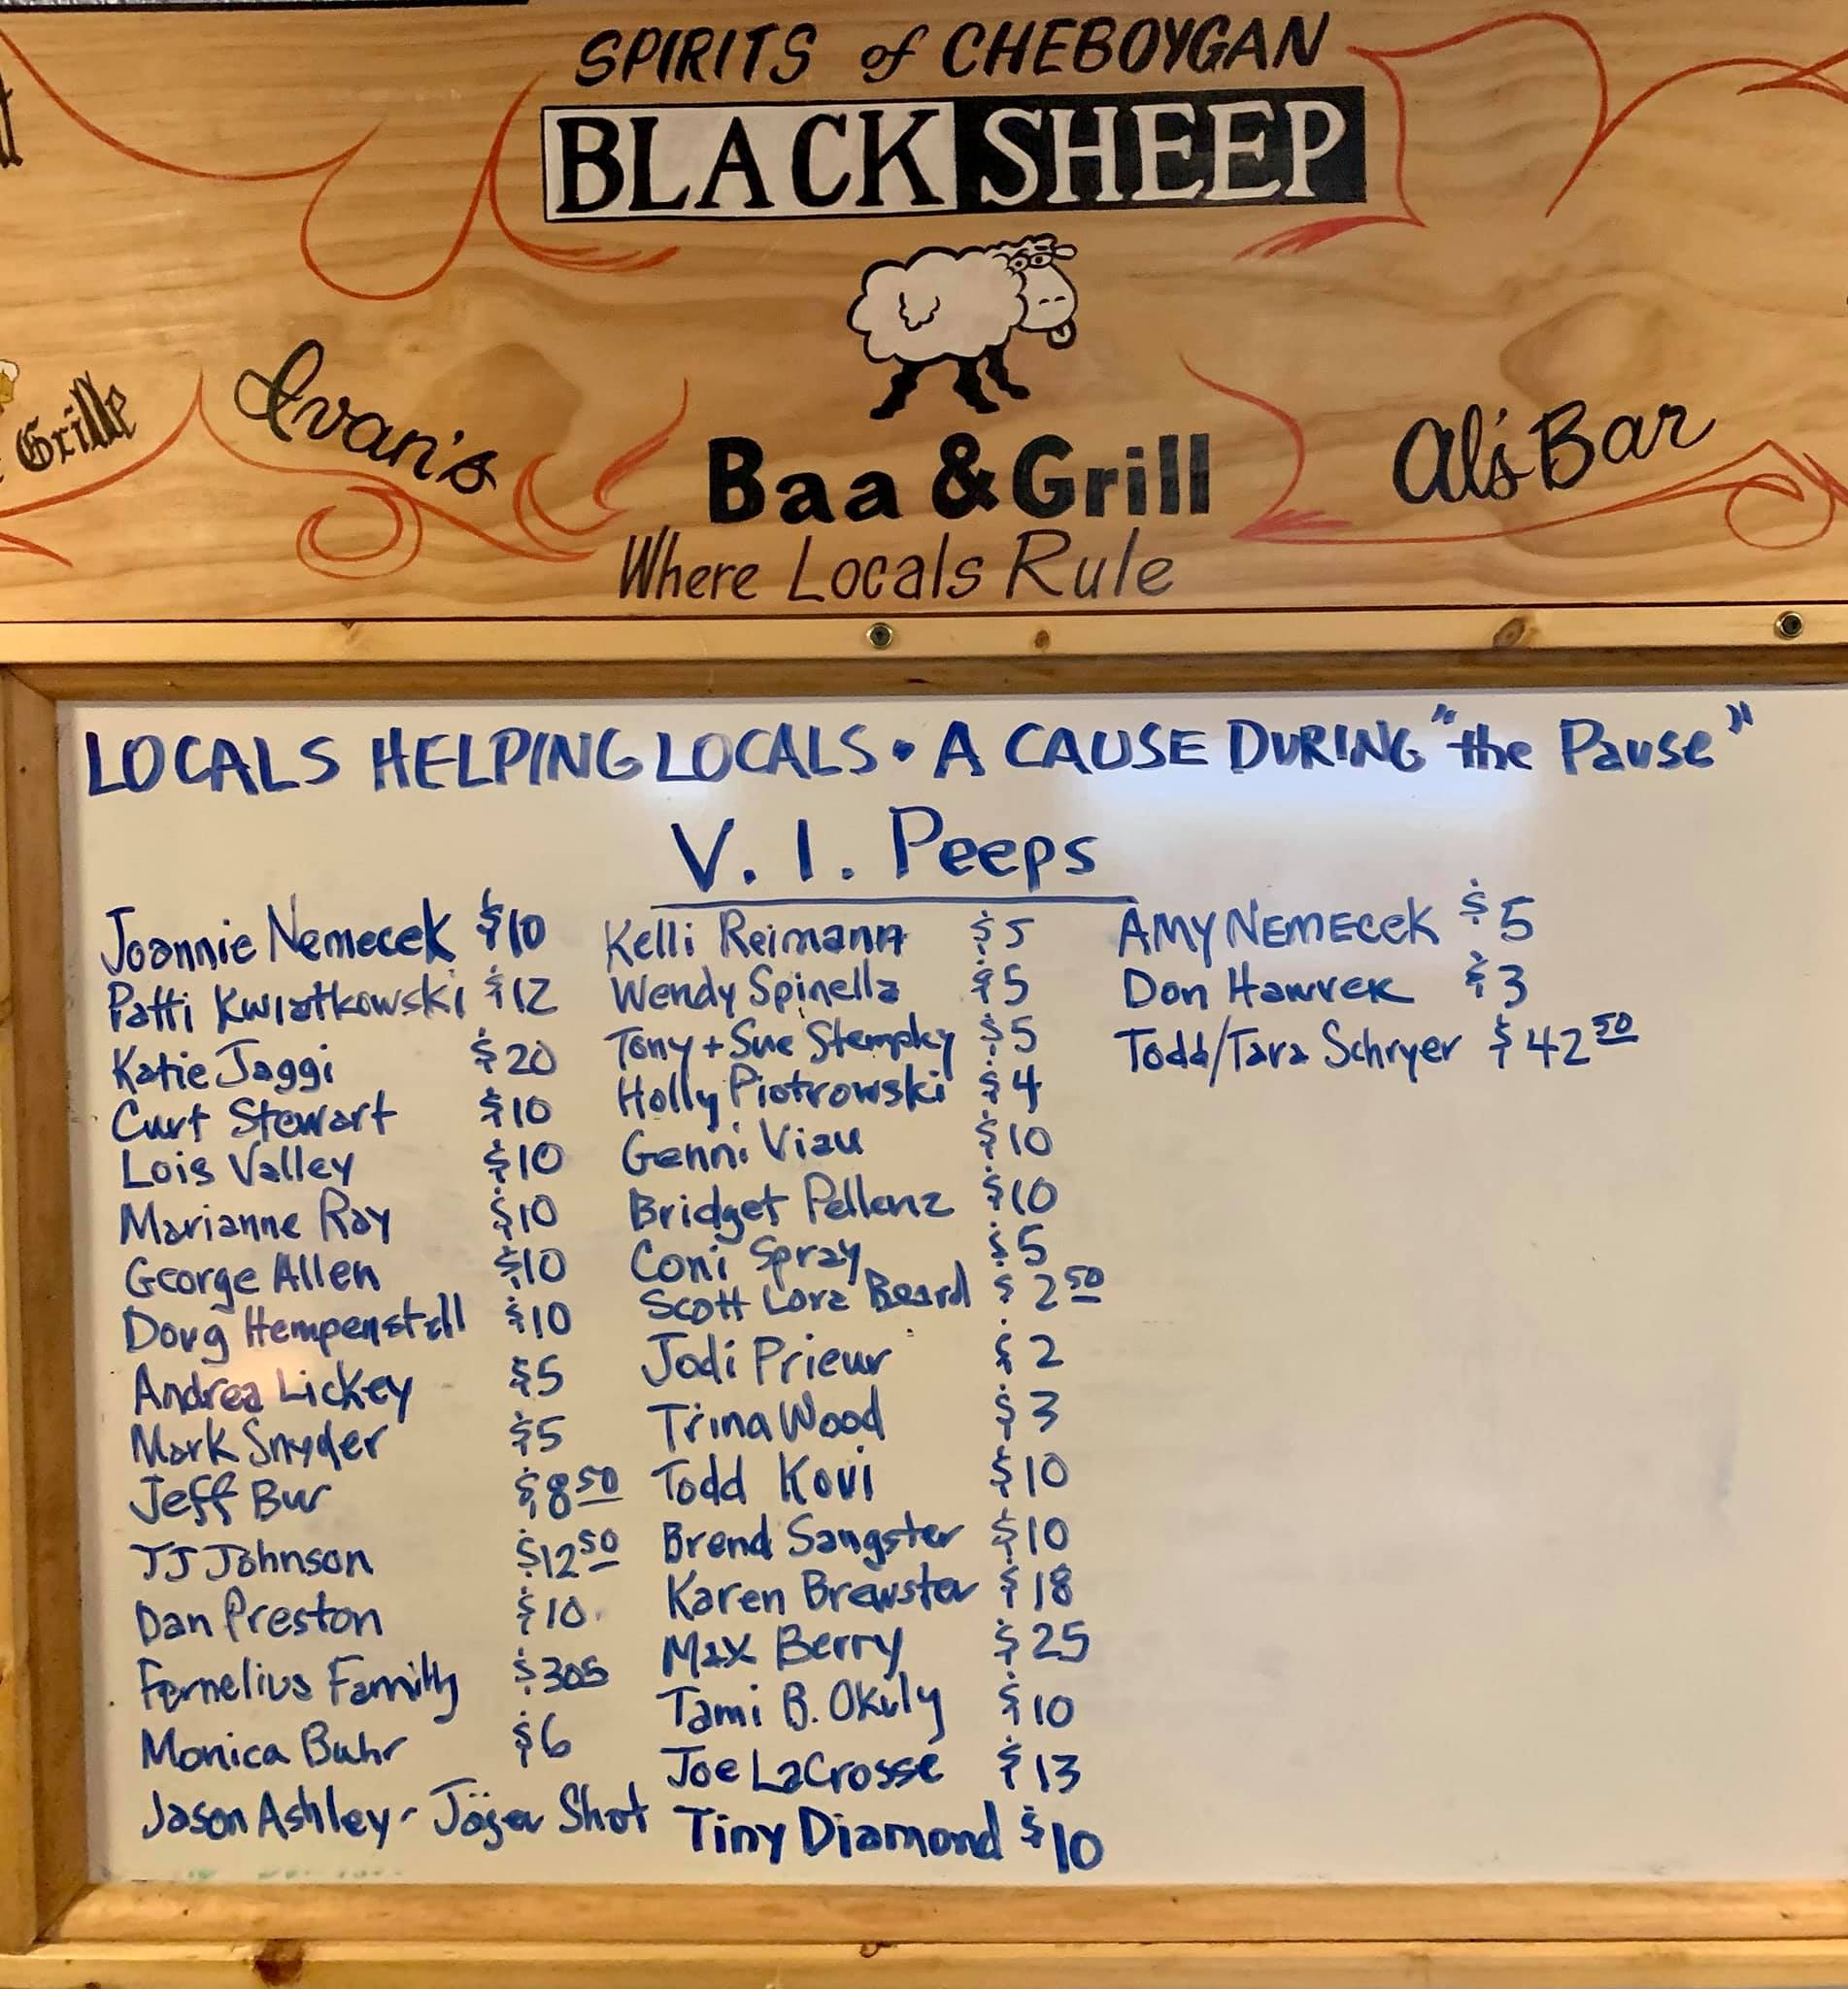 SPIRITS of CHEBOYGAN
BLACK SHEEP
Grille
Ivan's
Baa & Grill
Al's Bar
Where Locals Rule
LOCALS HELPING LOCALS • A CAUSE DURING "the Pause"
V. I. Peeps
Joannie Nemecek $10
Patti Kwiatkowski $12
Katie Jaggi $20
Curt Stewart $10
Lois Valley $10
Marianne Ray $10
George Allen $10
Doug Hempenstall $10
Andrea Lickey $5
Mark Snyder $5
Jeff Bur $8 50
JJ Johnson $12 50
Dan Preston $10
Fernelius Family $305
Monica Buhr $6
Jason Ashley - Jäger Shot
Kelli Reimann $5
Wendy Spinella $5
Tony + Sue Stempky $5
Holly Piotrowski $4
Genni Viau $10
Bridget Pellenz $10
Coni Spray $5
Scott Lora Beard $2 50
Jodi Prieur $2
Trina Wood $3
Todd Kovi $10
Brend Sangster $10
Karen Brewster $18
Max Berry $25
Tami B. Okuly $10
Joe LaCrosse $13
Tiny Diamond $10
AMY NEMECEK $5
Don Hawrek $3
Todd/Tara Schryer $42 50